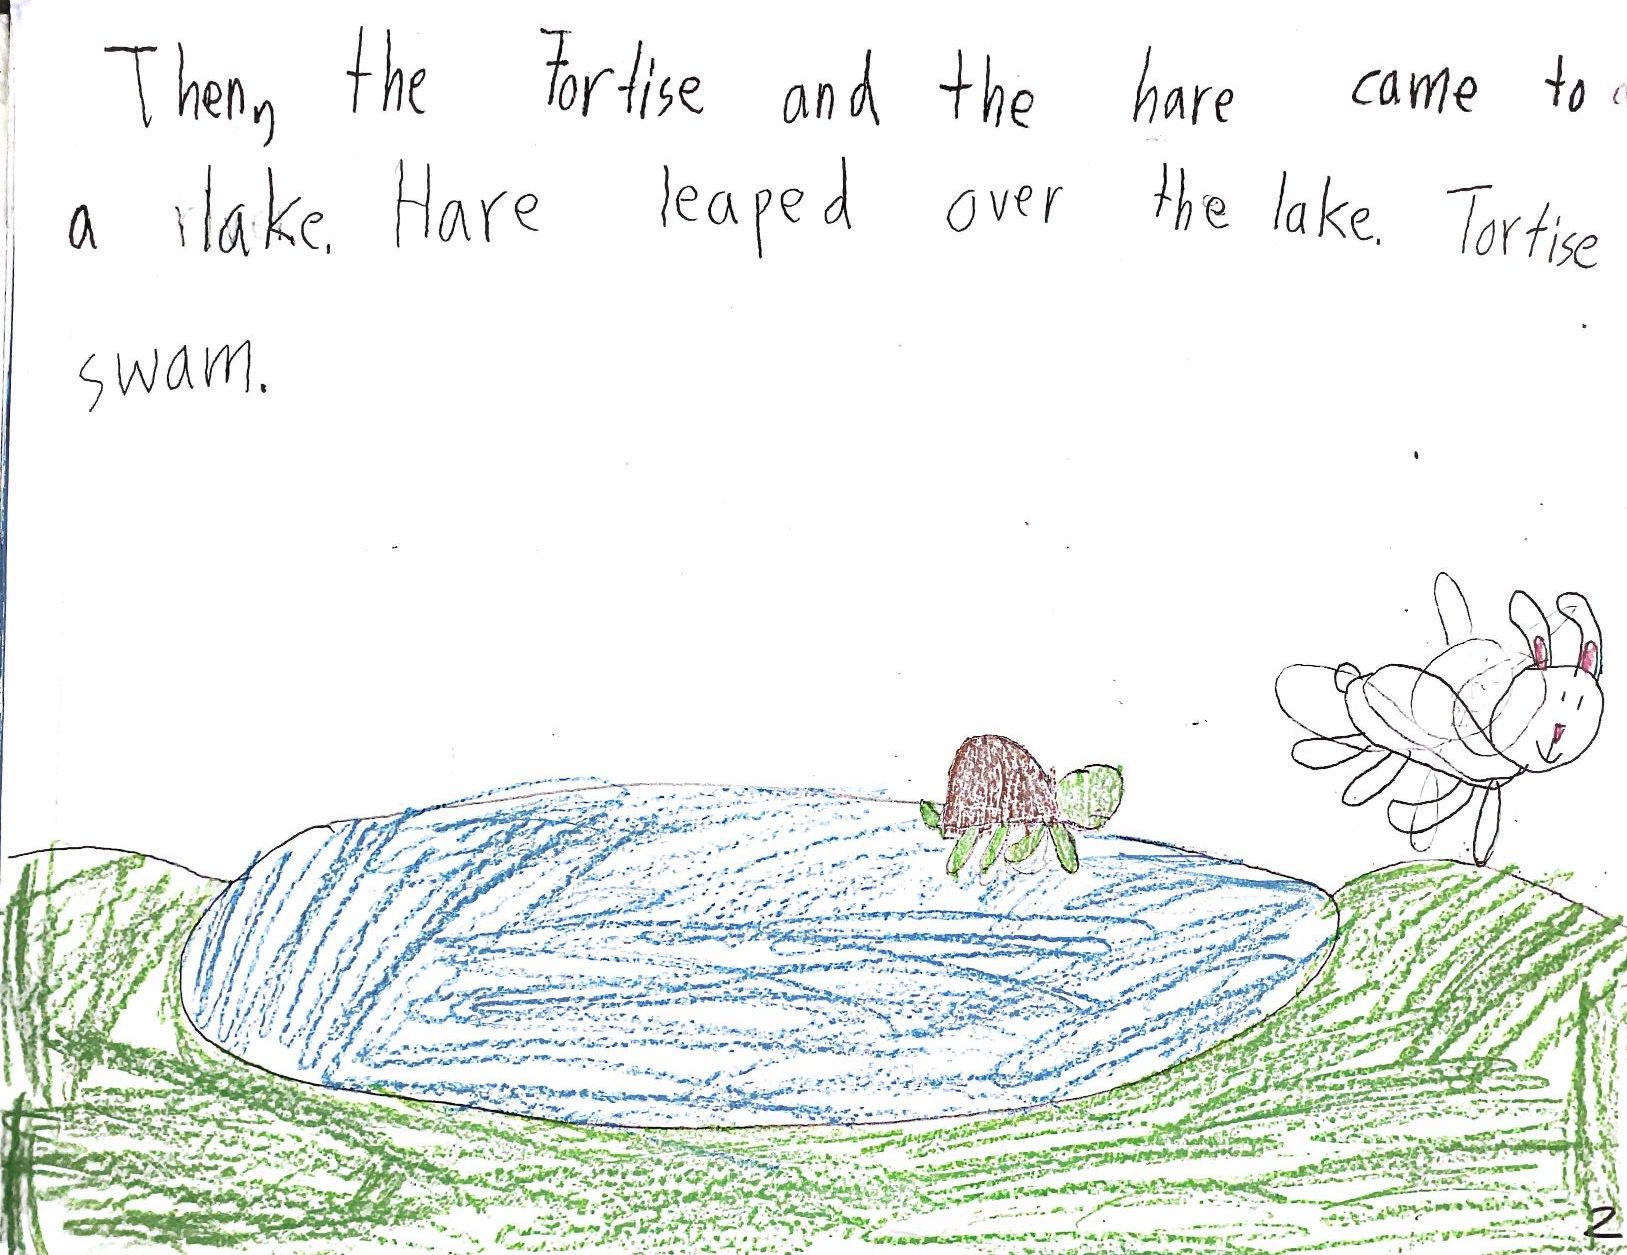 Then, the Tortise and the hare came to
a lake. Hare leaped over the lake. Tortise
swam.
2